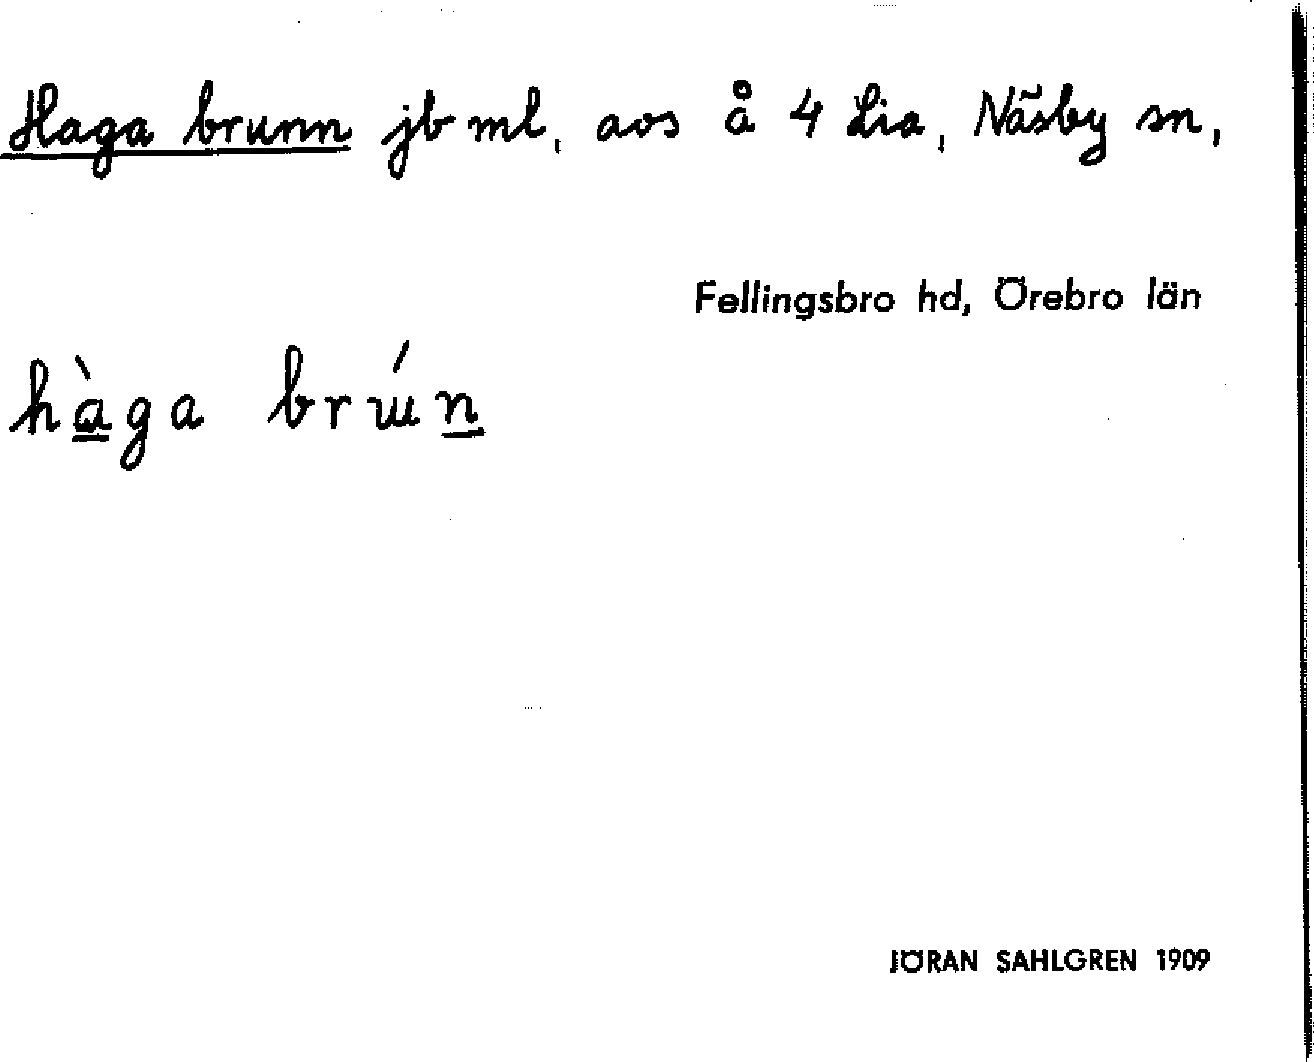 Haga brunn jb ml, aos å 4 Lia, Näsby sn,
Fellingsbro hd, Örebro län
hàga brɯ́n
JÖRAN SAHLGREN 1909